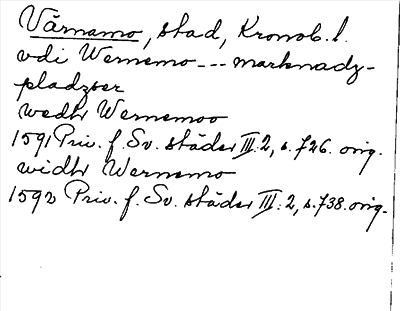 Värnamo, stad, Kronob. l.
vdi Wernemo --- marknadz-
pladzser
wedh Wernemoo
1591 Priv. f. Sv. städer III: 2, s. 726. orig.
widh Wernemo
1592 Priv. f. Sv. städer III: 2, s. 738. orig.